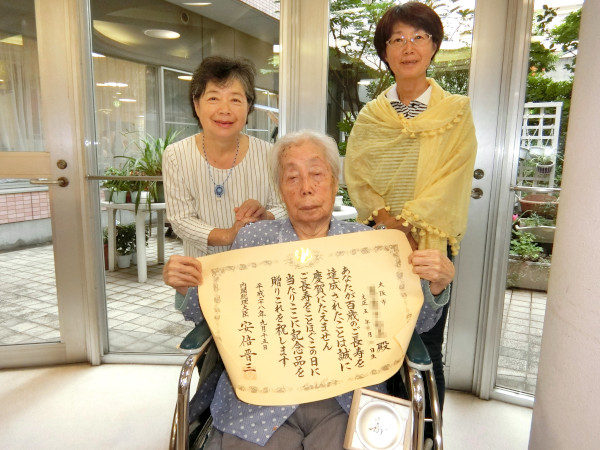 大阪市
殿
大正五年
日生
あなたが百歳のご長寿を
達成されたことは誠に
慶賀にたえません
ご長寿をことほぐこの日に
当たりここに記念品を
贈りこれを祝します
平成二十八年九月十五日
内閣総理大臣 安倍晋三